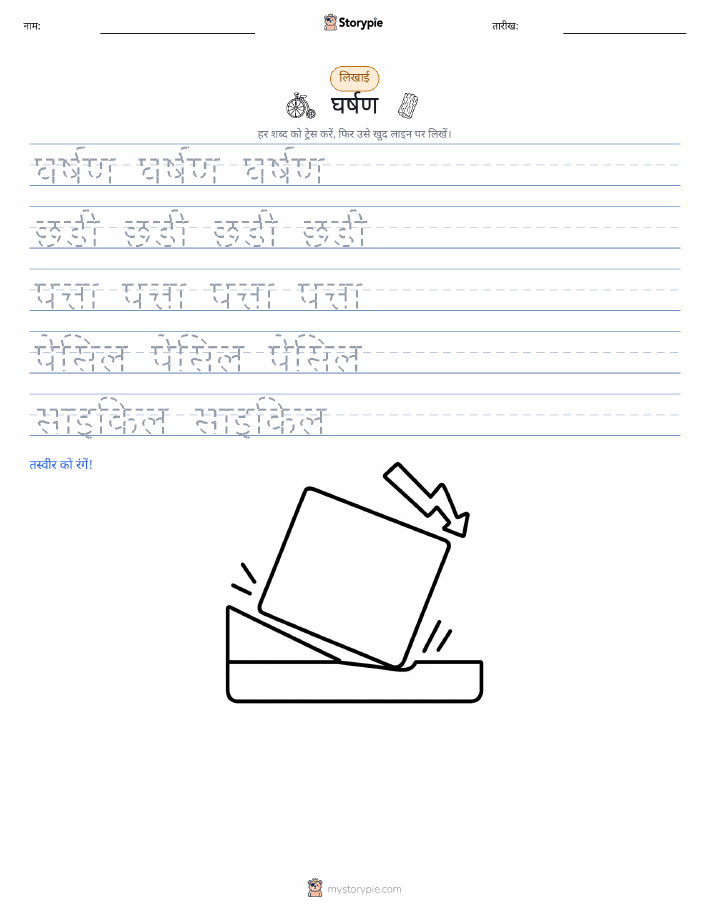 नाम: Storypie तारीख:
लिखाई
घर्षण
हर शब्द को ट्रेस करें, फिर उसे खुद लाइन पर लिखें।
घर्षण घर्षण घर्षण
छडी छडी छडी छडी
पत्ता पत्ता पत्ता पत्ता
पेंसिल पेंसिल पेंसिल
साइकिल साइकिल
तस्वीर को रंगें!
mystorypie.com